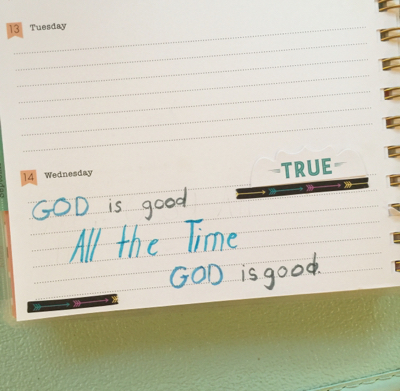 13 Tuesday
14 Wednesday
TRUE
GOD is good
All the Time
GOD is good.